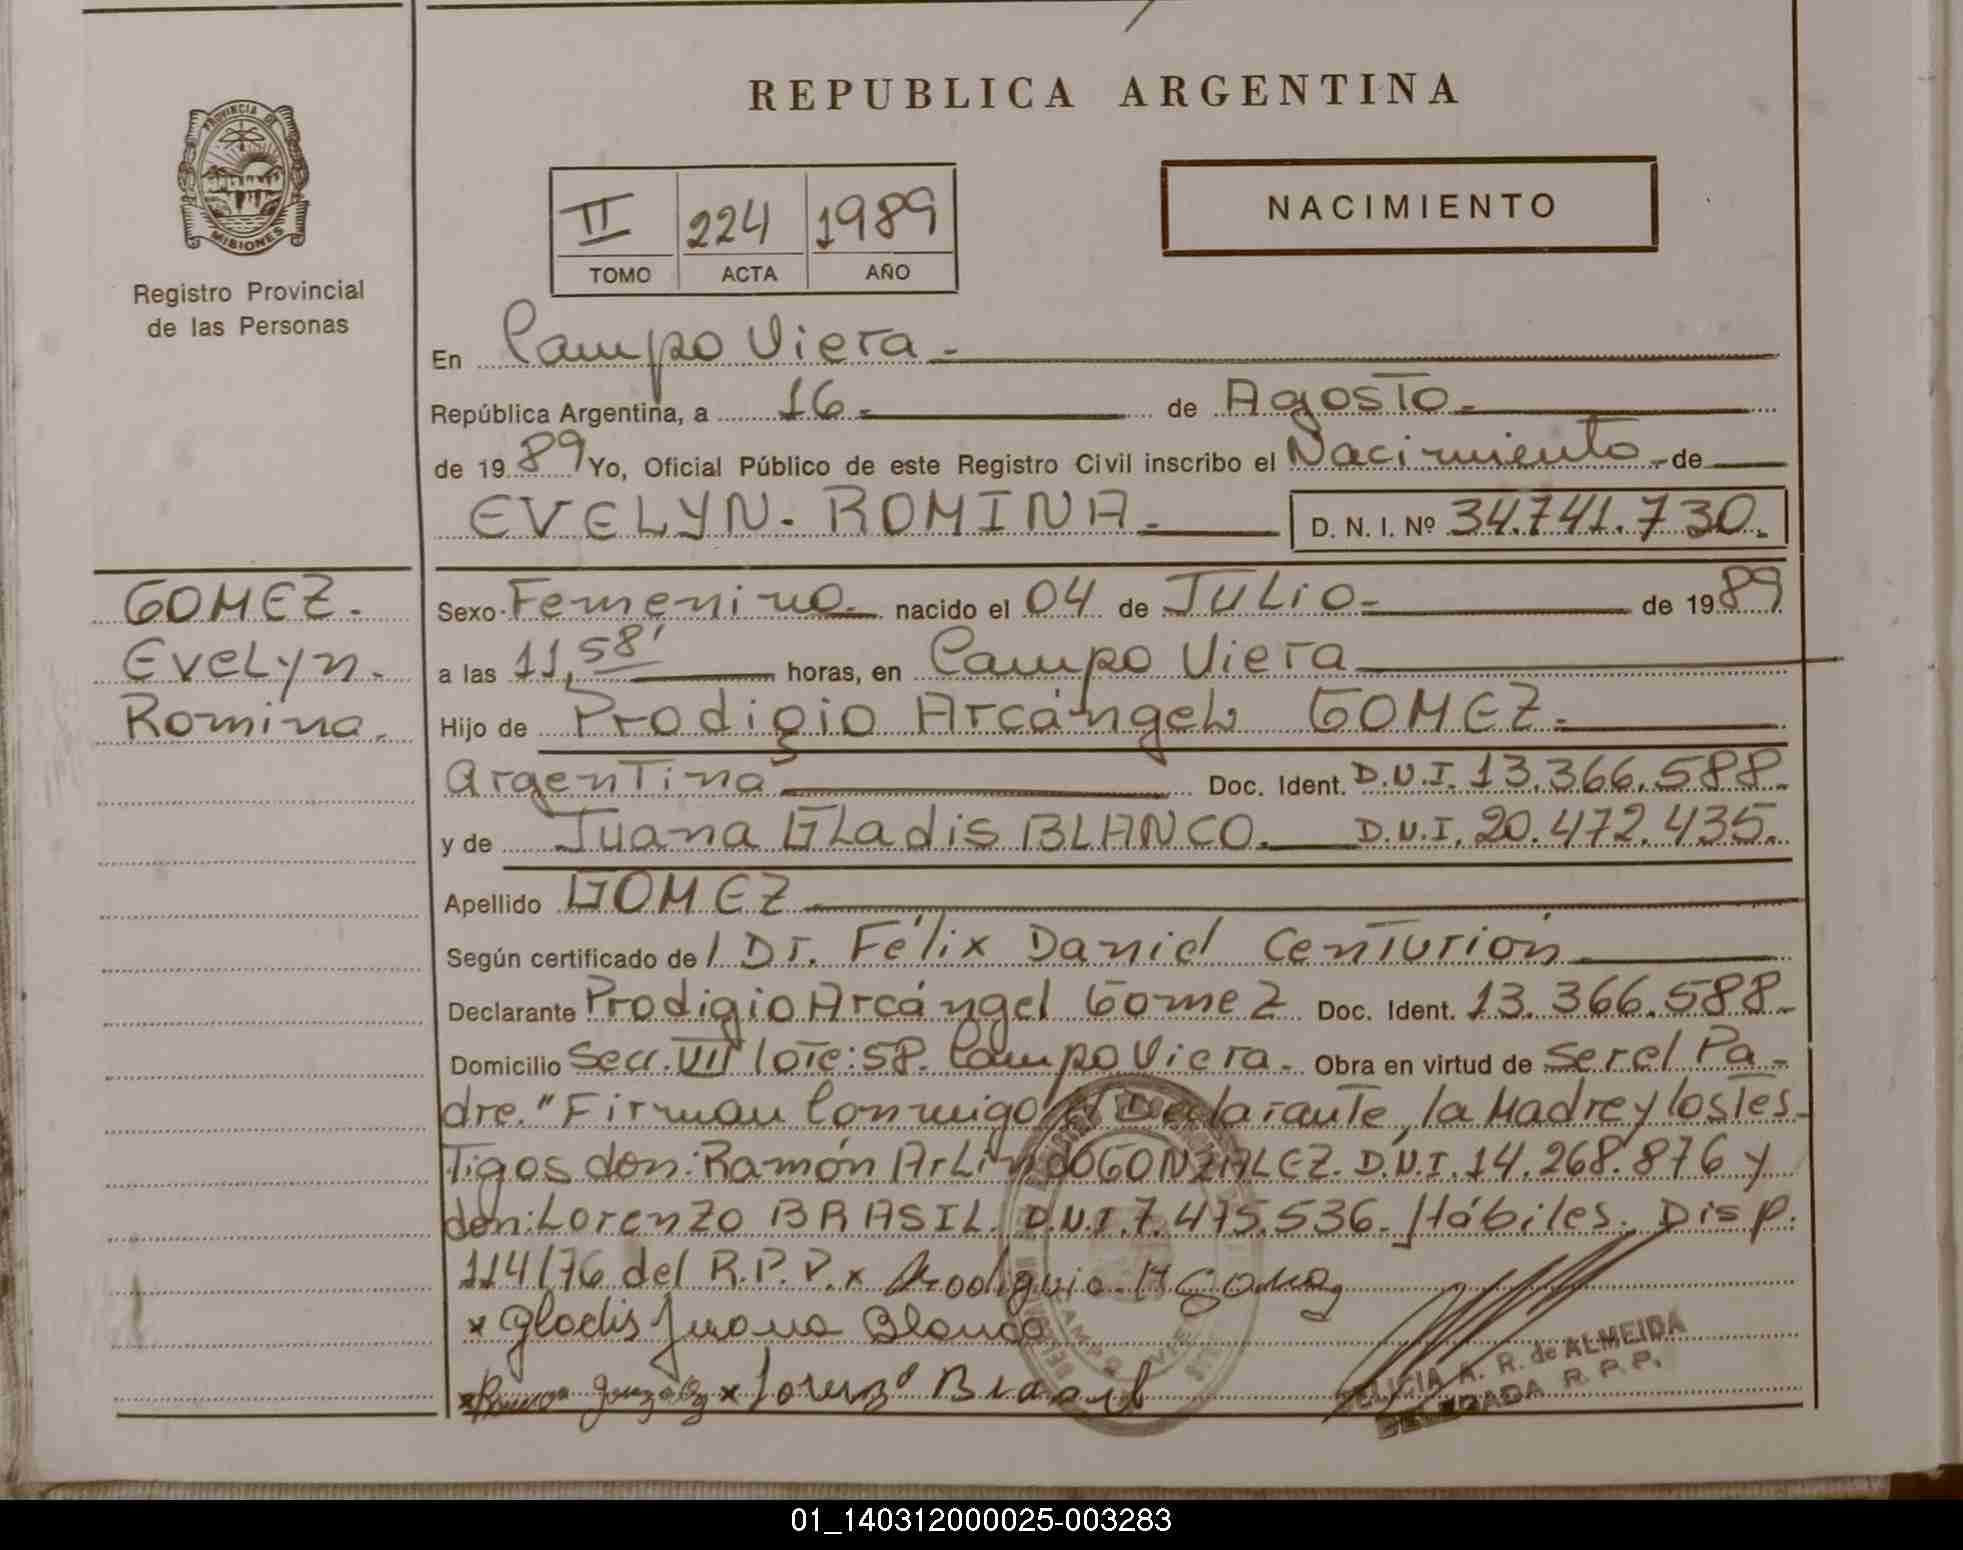 REPUBLICA ARGENTINA
PROVINCIA DE
MISIONES
Registro Provincial
de las Personas
II 224 1989
TOMO ACTA AÑO
NACIMIENTO
En Campo Viera.-
República Argentina, a 16.- de Agosto.-
de 1989 Yo, Oficial Público de este Registro Civil inscribo el Nacimiento.- de
EVELYN. ROMINA.- D. N. I. Nº 34.741.730.
GOMEZ.
Evelyn.
Romina.
Sexo Femenino. nacido el 04 de JULio.- de 1989
a las 11,58' horas, en Campo Viera
Hijo de Prodigio Arcángel GOMEZ.-
Argentina Doc. Ident. D.N.I. 13.366.588.
y de Juana GLadis BLANCO. D.N.I. 20.472.435.
Apellido GOMEZ
Según certificado de l Dr. Félix Daniel Centurión
Declarante Prodigio Arcángel Gomez Doc. Ident. 13.366.588.
Domicilio Secc. VII lote: 58. Campo Viera. Obra en virtud de ser el Pa-
dre." Firman Conmigo el Declarante, la Madre y los tes-
tigos don: Ramón ArLindo GONZALEZ. D.N.I. 14.268.876 y
don: Lorenzo BRASIL. D.N.I. 7.475.536. Hábiles. Disp.
114/76 del R.P.P. x Prodiguio A Gomez
x Gladis Juana Blanco
x Ramon Gonzalez x Lorenzo Brasil
FELICIA A. R. de ALMEIDA
DELEGADA R. P. P.
01_140312000025-003283